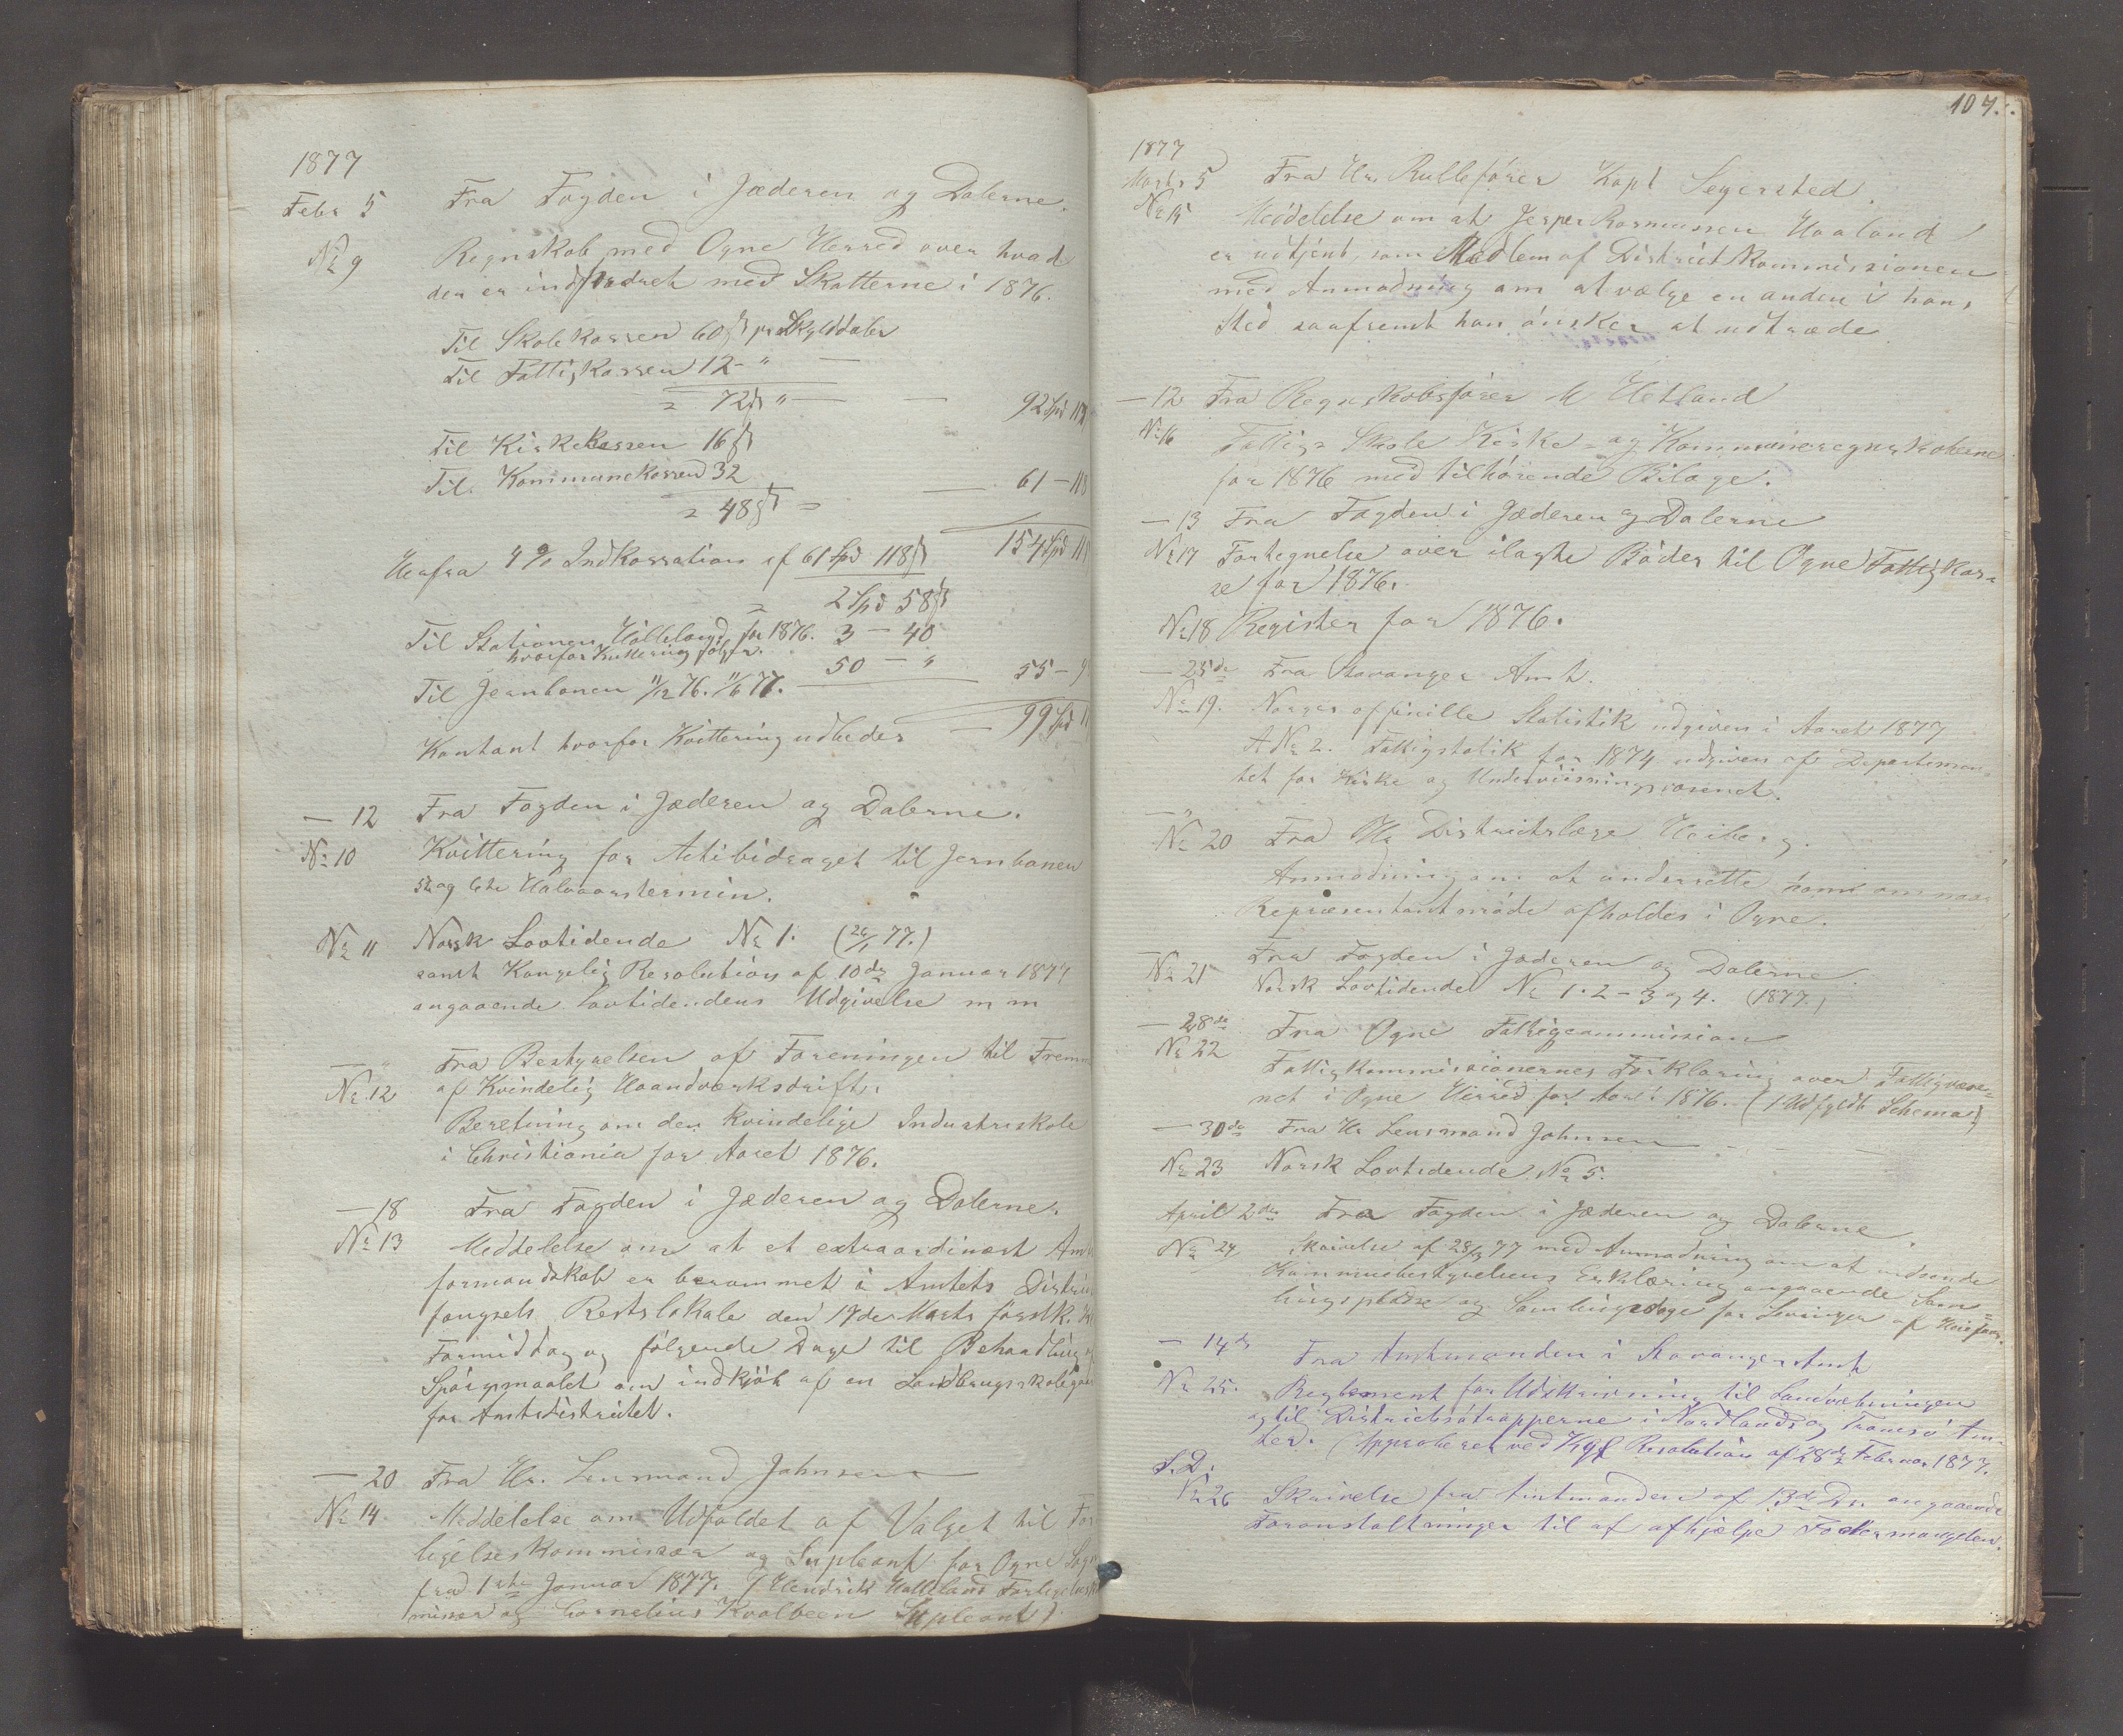 1877
Febr 5 Fra Fogden i Jæderen og Dalerne.
No 9 Regnskab med Ogne Herred over hvad
der er indfordret med Skatterne i 1876.
Til Skolekassen 60 ſs pr Skylddaler
Til Fattigkassen 12 - " —
= 72 ſs " — — 92 Spd
Til Kirkekassen 16 ſs
Til Kommunekassen 32
= 48 ſs = — 61 — 118
154 Spd
Herfra 4 % Indkassation af 61 Spd 118 ſs
= 2 Spd 58 ſs
Til Stationen Hølleland for 1876. 3 — 40
hvorfor Kvittering følger.
Til Jernbanen 11/12 76. 11/6 77. 50 — " 55 — 9
Kontant hvorfor Kvittering udbedes — 99 Spd
— 12 Fra Fogden i Jæderen og Dalerne.
No 10 Kvittering for Actibidraget til Jernbanen
5te og 6te Halvaarstermin.
No 11 Norsk Lovtidende No 1. (26/1 77.)
samt Kongelig Resolution af 10de Januar 1877
angaaende Lovtidendens Udgivelse m m
— " Fra Bestyrelsen af Foreningen til Frem
No 12 af Kvindelig Haandværksdrift.
Beretning om den kvindelige Industriskole
i Christiania for Aaret 1876.
— 18 Fra Fogden i Jæderen og Dalerne.
No 13 Meddelelse om at et extraordinært Amts
formandskab er berammet i Amtets Distrikts
fængsels Retslokale den 19de Marts førstk. Kl
Formiddag og følgende Dage til Behandling af
Spørgsmaalet om indkjøb af en Landbrugsskolegaard
for Amtsdistriktet.
— 20 Fra Hr. Lensmand Johnsen
No 14 Meddelelse om Udfaldet af Valget til For
ligelseskommissær og Supleant for Ogne Sogn
fra 1ste Januar 1877. (Hendrik Hølleland Forligelseskom
missær og Cornelius Kvalbeen Supleant)
107.
1877
Marts 5 Fra Hr. Rullefører Kapt Segersted.
No 15 Meddelelse om at Jesper Rasmussen Haaland
er udtjent, som Medlem af Distriktkommissionen
med Anmodning om at vælge en anden i hans
Sted saafremt han ønsker at udtræde
— 12 Fra Regnskabsfører M Hetland
No 16 Fattig- Skole Kirke- og Kommuneregnskaberne
for 1876 med tilhørende Bilage.
— 13 Fra Fogden i Jæderen og Dalerne
No 17 Fortegnelse over ilagte Bøder til Ogne Fattigkas-
se for 1876.
No 18 Register for 1876.
— 25de Fra Stavanger Amt.
No 19. Norges officielle Statistik udgiven i Aaret 1877
A No 2. Fattigstatik for 1874 udgiven af Departemen-
tet for Kirke og Underviisningsvæsenet.
— "
No 20 Fra Hr Distriktslæge Heiberg.
Anmodning om at underrette ham om naar
Repræsentantmøde afholdes i Ogne.
Fra Fogden i Jæderen og Dalerne.
No 21 Norsk Lovtidende No 1. 2 - 3 og 4. (1877.)
— 28de Fra Ogne Fattigcommission
No 22 Fattigkommissionernes Forklaring over Fattigvæse-
net i Ogne Herred for Aar 1876. (1 Udfyldt Schema)
— 30de Fra Hr Lensmand Johnsen
No 23 Norsk Lovtidende No 5.
April 2den Fra Fogden i Jæderen og Dalerne.
No 24 Skrivelse af 28/3 77 med Anmodning om at indsende
Kommunebestyrelsens Erklæring angaaende Sam-
lingsplads og Samlingsdage for
— 14de Fra Amtmanden i Stavanger Amt
No 25. Reglement for Udskrivning til Landværningen
og til Districtstropperne i Nordlands og Tromsø Am-
ter. (Approberet ved Kgl Resolution af 28de Februar 1877.
S. D.
No 26 Skrivelse fra Amtmanden af 13de Ds. angaaende
Foranstaltninger til af afhjælpe Fodermangelen.